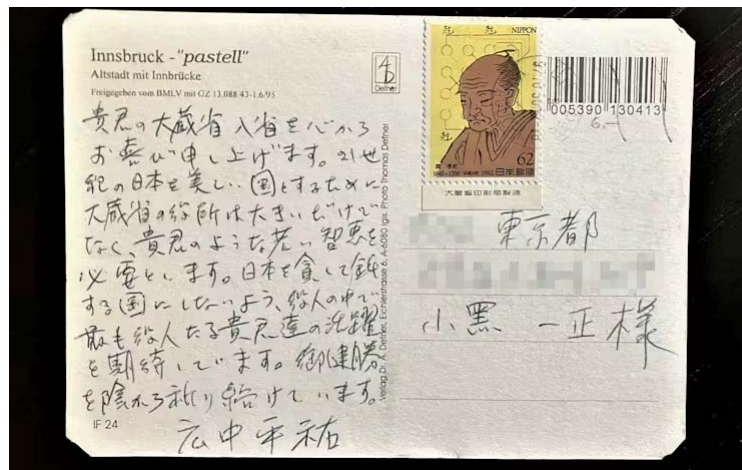 Innsbruck - "pastell"
Altstadt mit Innbrücke
Freigegeben vom BMLV mit GZ 13.088 43-1.6/95
貴君の大蔵省入省を心から
お喜び申し上げます。21世
紀の日本を美しい国とするために
大蔵省の役所は大きいだけで
なく、貴君のような若い智恵を
必要とします。日本を貪して鈍
する国にしないよう、役人の中で
最も役人たる貴君達の活躍
を期待しています。御健勝
を陰から祈り続けています。
広中平祐
IF 24
Detner
Verlag Dr. A. Detner, Eichlerstrasse 6, A-6080 Igls. Photo Thomas Detner
NIPPON
62
1992 日本郵便
大蔵省印刷局製造
005390 130413
東京都
小黒 一正 様